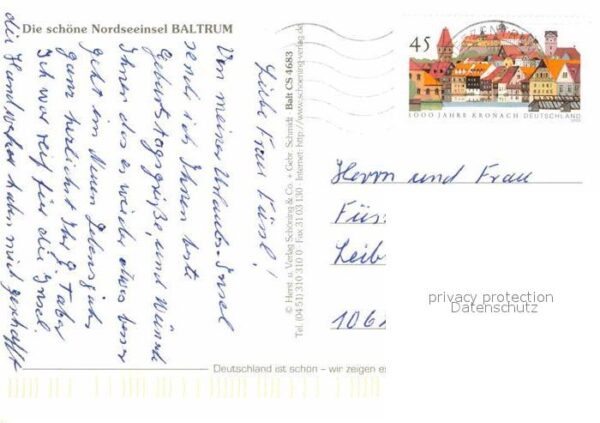 Die schöne Nordseeinsel BALTRUM
Liebe Frau Füssl!
Von meiner Urlaubs-Insel
sende ich Ihnen beste
Geburtstagsgrüße und wünsche
Ihnen das es wieder etwas besser
geht im Neuen Lebensjahr
ganz herzlichst Ihr G. Taber
Ich war reif für die Insel,
die Handwerker haben mich geschafft
© Herst. u. Verlag Schöning & Co. + Gebr. Schmidt Balt CS 4683
Tel. (04 51) 310 310 0 Fax 31 03 130 Internet: http://www.schoening-verlag.de
45
1000 JAHRE KRONACH DEUTSCHLAND
Herrn und Frau
Füs
Leib
106
privacy protection
Datenschutz
Deutschland ist schön – wir zeigen es